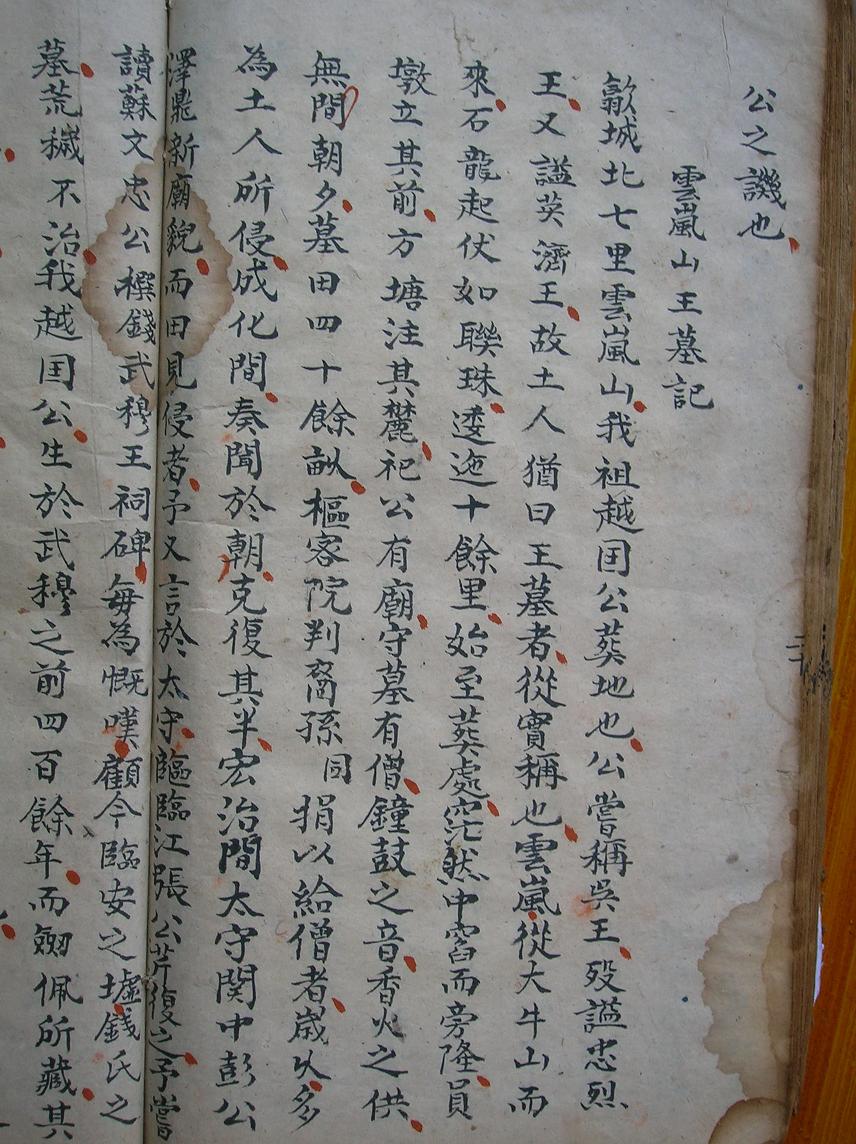 公之譏也
雲嵐山王墓記
歙城北七里雲嵐山我祖越国公葬地也公嘗稱吳王殁謚忠烈
王又謚英濟王故土人猶曰王墓者從實稱也雲嵐從大牛山而
來石龍起伏如聯珠逶迤十餘里始至葬處窊然中窩而旁隆員
墩立其前方塘注其麓祀公有廟守墓有僧鐘鼓之音香火之供
無間朝夕墓田四十餘畝樞密院判裔孫同捐以給僧者歲久多
為土人所侵成化間奏聞於朝克復其半宏治間太守関中彭公
澤鼎新廟貌而田見侵者予又言於太守臨江張公芹復之予嘗
讀蘇文忠公撰錢武穆王祠碑每為慨嘆顧今臨安之墟錢氏之
墓荒穢不治我越国公生於武穆之前四百餘年而劔佩所藏其